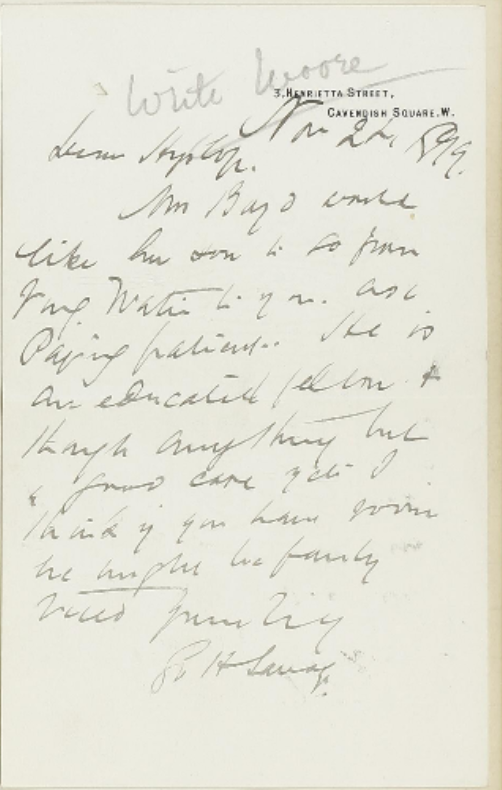 Write Moore
3, HENRIETTA STREET,
CAVENDISH SQUARE. W.
Nov 24 1899.
Dear Hyslop.
Mrs Boyd would
like her son to go from
to you. as a
Paying patient. He is
an educated fellow &
though anything but
a good case yet I
think if you have room
he might be fairly
tried Yours truly
Geo H Savage